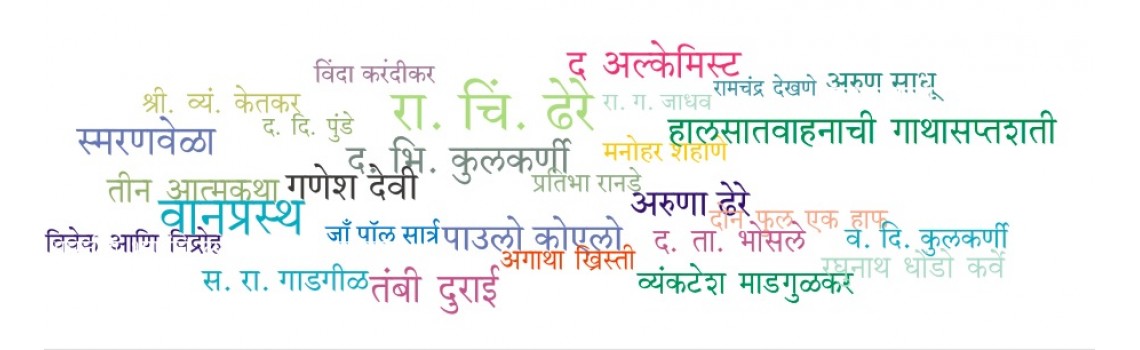 द अल्केमिस्ट
विंदा करंदीकर
रामचंद्र देखणे
अरुण साधू
श्री. व्यं. केतकर
रा. चिं. ढेरे
रा. ग. जाधव
द. दि. पुंडे
स्मरणवेळा
हालसातवाहनाची गाथासप्तशती
द. भि. कुलकर्णी
मनोहर शहाणे
तीन आत्मकथा
गणेश देवी
प्रतिभा रानडे
अरुणा ढेरे
वानप्रस्थ
दोन फुल एक हाफ
विवेक आणि विद्रोह
जाँ पॉल सार्त्र
पाउलो कोएलो
द. ता. भोसले
व. दि. कुलकर्णी
अगाथा ख्रिस्ती
रघुनाथ धोंडो कर्वे
स. रा. गाडगीळ
तंबी दुराई
व्यंकटेश माडगुळकर